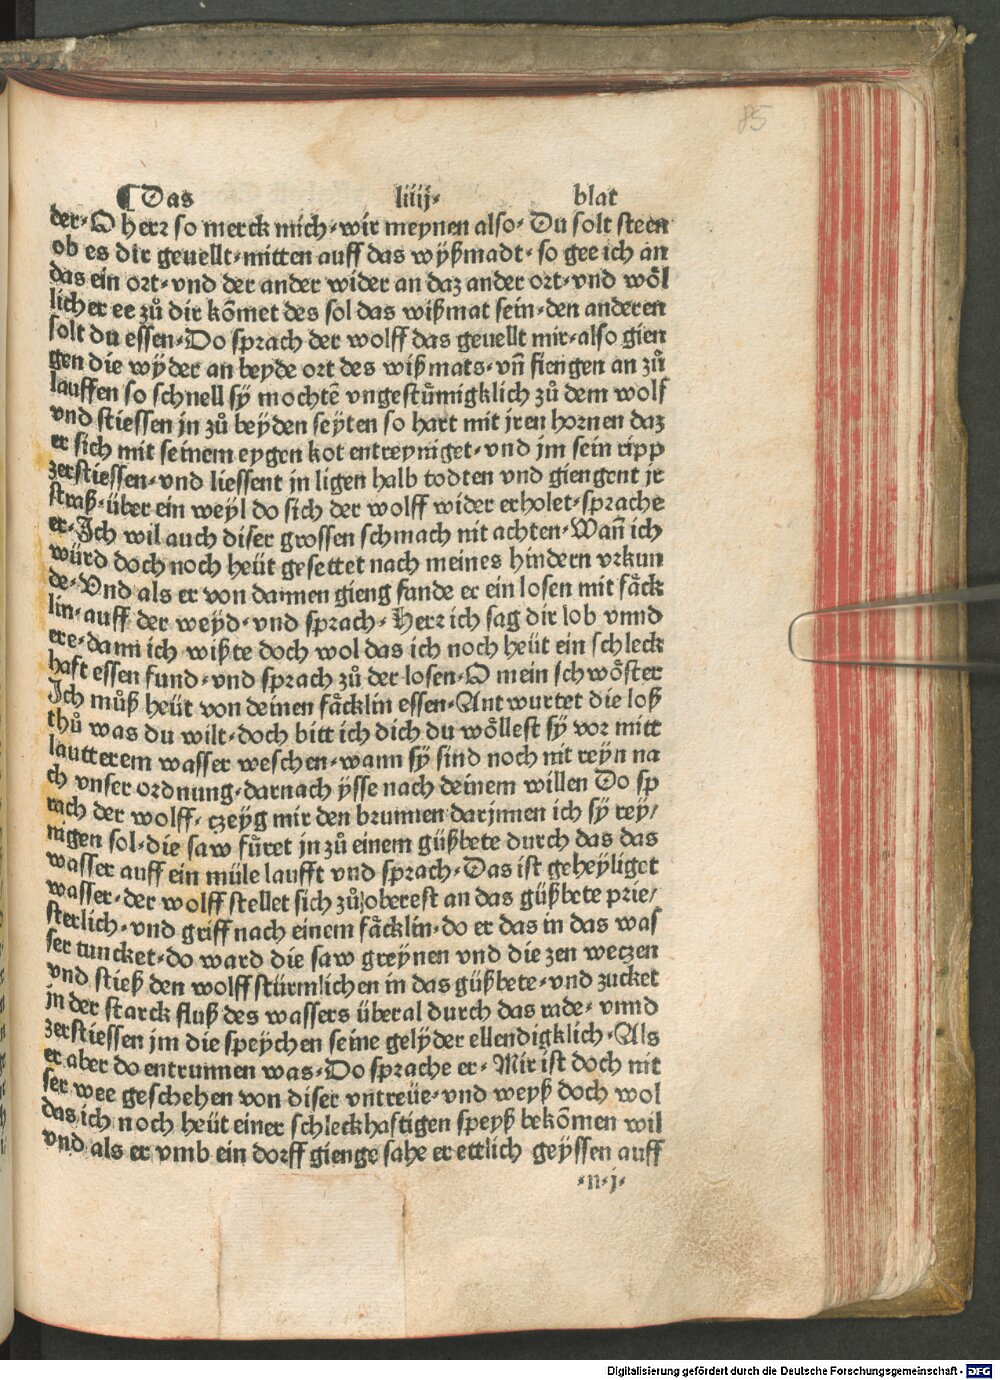 85
¶ Das liiij· blat
der· O herꝛ so merck mich· wir meynen also· Du solt steen
ob es dir geuellt· mitten auff das wÿßmadt· so gee ich an
das ein ort· vnd der ander wider an daz ander ort· vnd woͤl
licher ee zuͦ dir kōmet des sol das wißmat sein· den anderen
solt du essen· Do sprach der wolff das geuellt mir· also gien
gen die wÿder an beyde ort des wißmats· vn̄ fiengen an zuͦ
lauffen so schnell sÿ mochtē vngestuͤmigklich zuͦ dem wolf
vnd stiessen jn zuͦ beÿden seÿten so hart mit jren hornen daz
er sich mit seinem eygen kot entreyniget· vnd jm sein ripp
zerstiessen· vnd liessent in ligen halb todten vnd giengent jr
straß· über ein weÿl do sich der wolff wider erholet· sprache
er· Ich wil auch diser grossen schmach nit achten· Wan̄ ich
würd doch noch heüt gesettet nach meines hindern vrkun
de· Vnd als er von dannen gieng fande er ein losen mit faͤck
lin· auff der weyd· vnd sprach· Herꝛ ich sag dir lob vnnd
ere· dann ich wißte doch wol das ich noch heüt ein schleck
haft essen fund· vnd sprach zuͦ der losen· O mein schwoͤster
Ich muͦß heüt von deinen faͤcklin essen· Antwurtet die loß
thuͦ was du wilt· doch bitt ich dich du woͤllest sÿ vor mitt
lautterem wasser weschen· wann sÿ sind noch nit reÿn na
ch vnser ordnung· darnach ÿsse nach deinem willen Do sp
rach der wolff· czeyg mir den brunnen darjnnen ich sÿ rey/
nigen sol· die saw fuͤret jn zuͦ einem güßbete durch das das
wasser auff ein müle laufft vnd sprach· Das ist geheÿliget
wasser· der wolff stellet sich zuͦ oberest an das güßbete prie/
sterlich· vnd griff nach einem faͤcklin· do er das in das was
ser tuncket· do ward die saw greÿnen vnd die zen weczen
vnd stieß den wolff stürmlichen in das güßbete· vnd zucket
jn der starck fluß des wassers überal durch das rade· vnnd
zerstiessen jm die speÿchen seine gelÿder ellendigklich· Als
er aber do entrunnen was· Do sprache er· Mir ist doch nit
ser wee geschehen von diser vntreüe· vnd weyß doch wol
das ich noch heüt einer schleckhaftigen speyß bekōmen wil
vnd als er vmb ein dorff gienge sahe er ettlich geÿssen auff
·n·j·
Digitalisierung gefördert durch die Deutsche Forschungsgemeinschaft - DFG